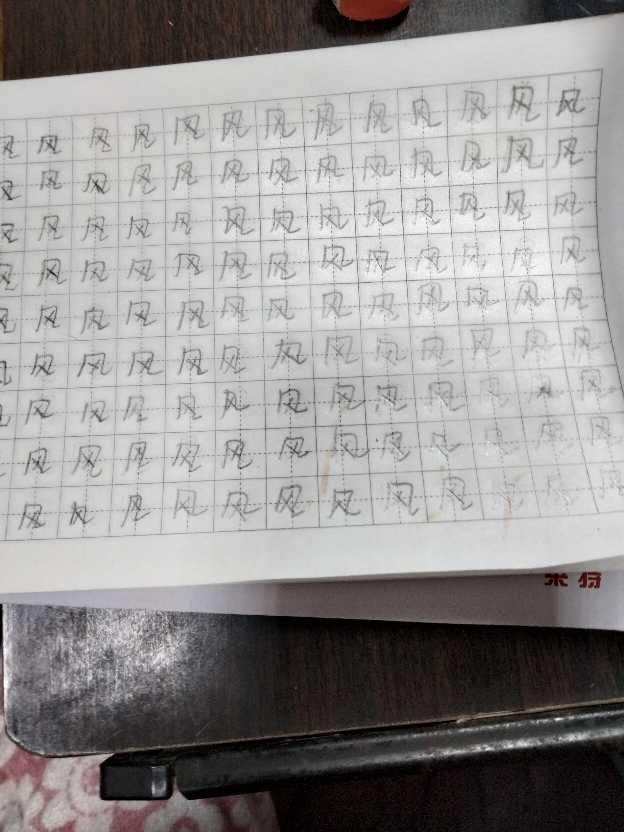 风风风风风风风风风风风风风
风风风风风风风风风风风风风
风风风风风风风风风风风风风
风风风风风风风风风风风风风
风风风风风风风风风风风风风
风风风风风风风风风风风风风
风风风风风风风风风风风风风
风风风风风风风风风风风风
风风风风风风风风风风风风